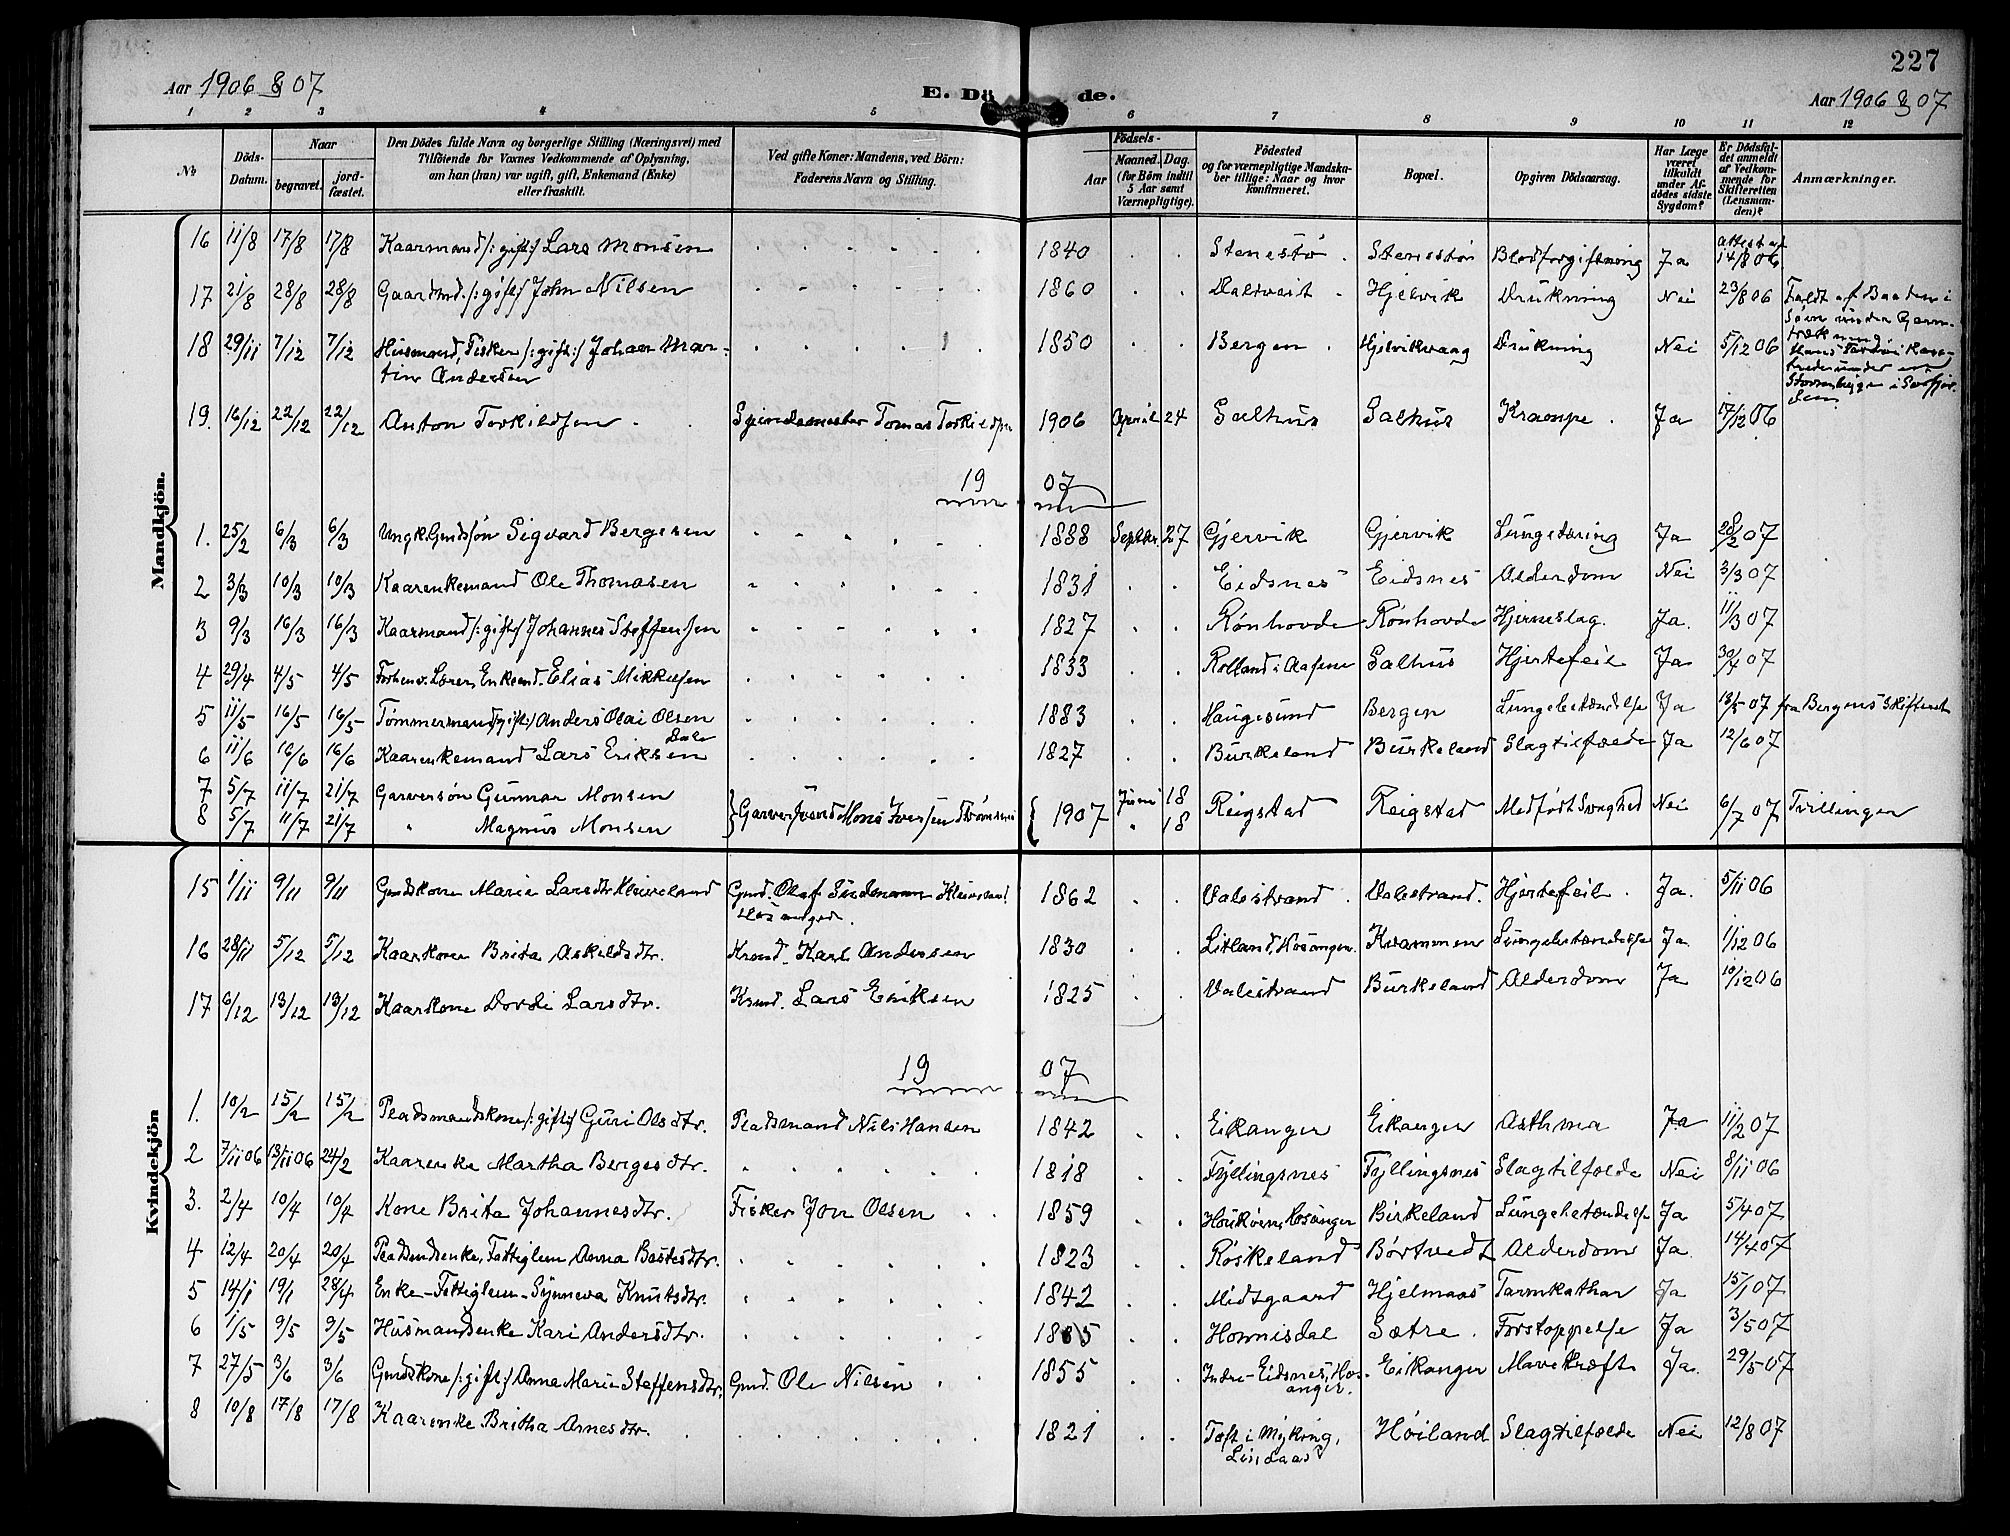 227
Aar 1906 & 07
E. Dö de.
Aar 1906 & 07
1 2 3 4 5 6 7 8 9 10 11 12
No
Döds-Datum.
Naar
begravet.
jord-fæstet.
Den Dödes fulde Navn og borgerlige Stilling (Næringsvei) med
Tilföiende for Voxnes Vedkommende af Oplysning,
om han (hun) var ugift, gift, Enkemand (Enke)
eller fraskilt.
Ved gifte Koner: Mandens, ved Börn:
Faderens Navn og Stilling.
Födsels-
Aar
Maaned. Dag.
(for Börn indtil
5 Aar samt
Værnepligtige).
Födested
og for værnepligtige Mandska-
ber tillige: Naar og hvor
konfirmeret.
Bopæl.
Opgiven Dödsaarsag.
Har Læge
været
tilkaldt
under Af-
dödes sidste
Sygdom?
Er Dödsfal-
det anmeldt
af Vedkom-
mende for
Skifteretten
(Lensman-
den)?
Anmærkninger.
Mandkjön.
16 11/8 17/8 17/8 Kaarmand /: gift:/ Lars Monsen 1840 Stenestø Stenestø Blodforgiftning Ja Attest af 14/8 06
17 21/8 28/8 28/8 Gaardmd. /: gift:/ John Nilsen 1860 Daltveit Hjelvik Drukning Nei 23/8 06 Faldt af Baaden i
Søen under Garn-
trækning.
18 29/11 7/12 7/12 Husmand, Fisker /: gift:/ Johan Mar-
tin Andersen 1850 Bergen Hjelvikvaag Drukning Nei 5/12 06
19. 16/12 22/12 22/12 Anton Torkildsen Spindemester Tomas Torkildsen 1906 April 24 Salhus Salhus Krampe Ja 17/12 06
19 07
1. 25/2 6/3 6/3 Ungk. Gmdssøn Sigvard Bergesen 1888 Septbr. 27 Gjervik Gjervik Lungetæring Ja 28/2 07
2 3/3 10/3 10/3 Kaarenkemand Ole Thomasen 1831 Eidsnes Eidsnes Alderdom Nei 3/3 07
3 9/3 16/3 16/3 Kaarmand /: gift:/ Johannes Steffensen 1827 Rønhovde Rønhovde Hjerneslag. Ja. 11/3 07
4 29/4 4/5 4/5 Forhenv. Lærer, Enkemd. Elias Mikkelsen 1833 Rolland i Aasene Salhus Hjertefeil Ja 30/4 07
5 11/5 16/5 16/5 Tømmermand /: gift:/ Anders Olai Olsen
Dale 1883 Haugesund Bergen Lungebetændelse Ja 13/5 07 fra Bergens Skifteret
6 11/6 16/6 16/6 Kaarenkemand Lars Eriksen 1827 Burkeland Burkeland Slagtilfælde Ja 12/6 07
7 5/7 11/7 21/7 Garversøn Gunnar Monsen Garversvend Mons Iversen Trømsnes 1907 Juni 18 Reigstad Reigstad Medfødt Svaghed Nei 6/7 07 Tvillinger
8 5/7 11/7 21/7 " Magnus Monsen " 18
Kvindekjön
15 1/11 9/11 9/11 Gmdskone Marie Larsdtr. Kleiveland Gmd. Olaf Kleiveland
Hosanger. 1862 Valestrand Valestrand. Hjertefeil Ja. 5/11 06
16 28/11 5/12 5/12 Kaarkone Brita Askeldsdtr. Krmd. Karl Andersen 1830 Litland, Hosanger. Kvammen Lungebetændelse Ja 1/12 06
17 6/12 13/12 13/12 Kaarkone Dordi Larsdtr. Krmd. Lars Eriksen 1825 Valestrand Burkeland Alderdom Ja 10/12 06
19 07
1. 10/2 15/2 15/2 Pladsmandskone /: gift:/ Guri Olsdtr. Pladsmand Nils Hansen 1842 Eikanger Eikanger Asthma Ja 11/2 07
2 7/11 06 13/11 06 24/2 Kaarenke Martha Bergesdtr. 1818 Fyllingsnes Fyllingsnes Slagtilfælde Nei 8/11 06
3. 2/4 10/4 10/4 Kone Brita Johannesdtr. Fisker Jon Olsen 1859 Hosanger Birkeland Lungebetændelse Ja 5/4 07
4 12/4 20/4 20/4 Pladsmdsenke, Fattiglem Anna Bastesdtr. 1823 Røskeland Børtvedt Alderdom Ja. 14/4 07
5 14/1 19/1 28/4 Enke - Fattiglem - Synneva Knutsdtr. 1842 Midtgaard Hjelmaas Tarmkathar Ja 15/1 07
6 1/5 9/5 9/5 Husmandsenke Kari Andersdtr. Honnisdal Sætre. Forstoppelse Ja 3/5 07
7 27/5 3/6 3/6 Gmdskone /: gift:/ Anne Marie Steffensdtr. Gmd. Ole Nilsen 1855 Indre-Eidsnes, Hos-
anger. Eikanger Mavekræft Ja. 29/5 07
8 10/8 17/8 17/8 Kaarenke Britha Arnesdtr. 1821 Toft i Myking,
Lindaas Høiland Slagtilfælde Nei 12/8 07